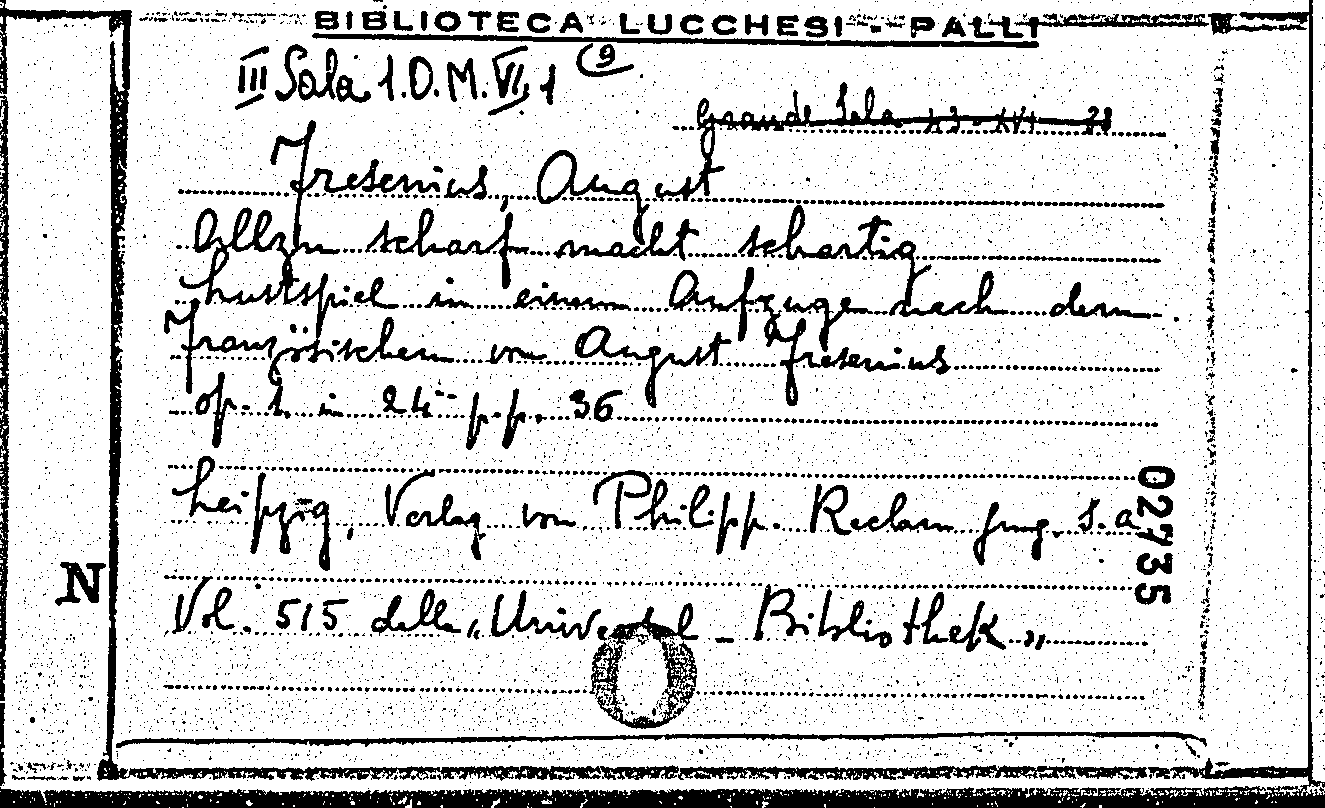 BIBLIOTECA LUCCHESI - PALLI
III Sala 1.D.M.VI,1 (9
Grande Sala 23-XVI- 28
Fresenius, August
Allzu scharf macht schartig
Lustspiel in einem Aufzuge nach dem
Französischen von August Fresenius
op. 1. in 24° p.p. 36
Leipzig, Verlag von Philipp. Reclam jung. S.a
02735
N
Vol. 515 della „Universal - Bibliothek„